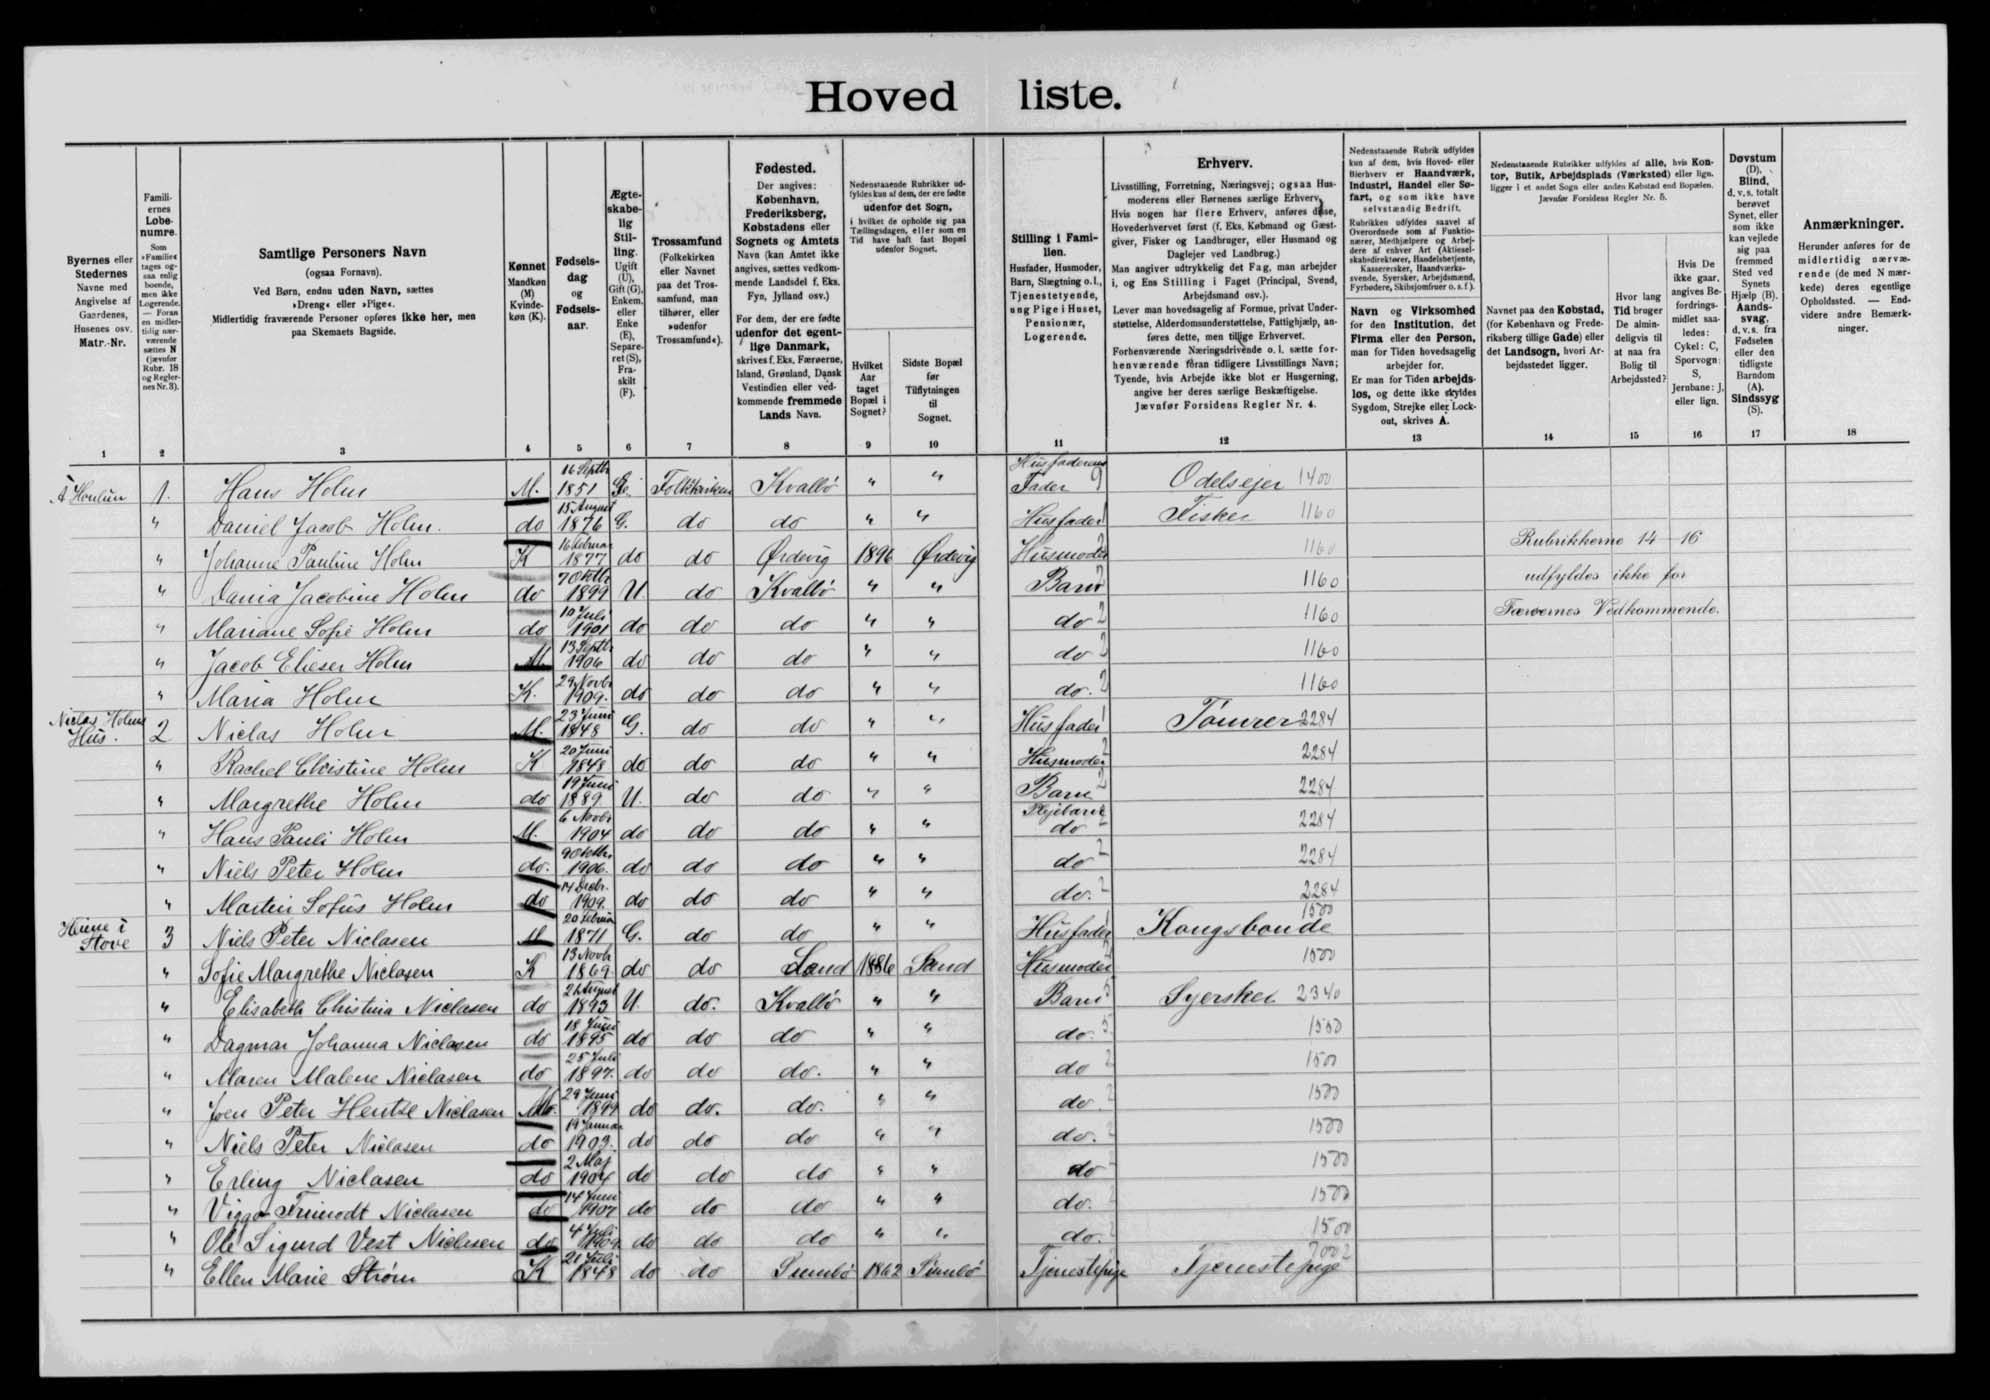 Hoved liste.
Byernes eller Stedernes Navne med Angivelse af Gaardenes, Husenes osv. Matr.-Nr.
Familiernes Løbenumre. Som »Familie« tages ogsaa enlig boende, men ikke Logerende. — Foran en midlertidig nærværende sættes N (jævnfør Rubr. 18 og Reglernes Nr. 3).
Samtlige Personers Navn (ogsaa Fornavn). Ved Børn, endnu uden Navn, sættes »Dreng« eller »Pige«. Midlertidig fraværende Personer opføres ikke her, men paa Skemaets Bagside.
Kønnet Mandkøn (M) Kvindekøn (K).
Fødselsdag og Fødselsaar.
Ægteskabelig Stilling. Ugift (U), Gift (G), Enkem. eller Enke (E), Separeret (S), Fraskilt (F).
Trossamfund (Folkekirken eller Navnet paa det Trossamfund, man tilhører, eller »udenfor Trossamfund«).
Fødested. Der angives: København, Frederiksberg, Købstadens eller Sognets og Amtets Navn (kan Amtet ikke angives, sættes vedkommende Landsdel f. Eks. Fyn, Jylland osv.) For dem, der ere fødte udenfor det egentlige Danmark, skrives f. Eks. Færøerne, Island, Grønland, Dansk Vestindien eller vedkommende fremmede Lands Navn.
Nedenstaaende Rubrikker udfyldes kun af dem, der ere fødte udenfor det Sogn, i hvilket de opholde sig paa Tællingsdagen, eller som en Tid have haft fast Bopæl udenfor Sognet.
Hvilket Aar taget Bopæl i Sognet?
Sidste Bopæl før Tilflytningen til Sognet.
Stilling i Familien. Husfader, Husmoder, Barn, Slægtning o.l., Tjenestetyende, ung Pige i Huset, Pensionær, Logerende.
Erhverv.
Livsstilling, Forretning, Næringsvej; ogsaa Husmoderens eller Børnenes særlige Erhverv. Hvis nogen har flere Erhverv, anføres disse, Hovederhvervet først (f. Eks. Købmand og Gæstgiver, Fisker og Landbruger, eller Husmand og Daglejer ved Landbrug.)
Man angiver udtrykkelig det Fag, man arbejder i, og Ens Stilling i Faget (Principal, Svend, Arbejdsmand osv.).
Lever man hovedsagelig af Formue, privat Understøttelse, Alderdomsunderstøttelse, Fattighjælp, anføres dette, men tillige Erhvervet.
Forhenværende Næringsdrivende o. l. sætte forhenværende foran tidligere Livsstillings Navn; Tyende, hvis Arbejde ikke blot er Husgerning, angive her deres særlige Beskæftigelse.
Jævnfør Forsidens Regler Nr. 4.
Nedenstaaende Rubrik udfyldes kun af dem, hvis Hoved- eller Bierhverv er Haandværk, Industri, Handel eller Søfart, og som ikke have selvstændig Bedrift.
Rubrikken udfyldes saavel af Overordnede som af Funktionærer, Medhjælpere og Arbejdere af enhver Art (Aktieselskabsdirektører, Handelsbetjente, Kasserersker, Haandværkssvende, Syersker, Arbejdsmænd, Fyrbødere, Skibsjomfruer o. s. f.).
Navn og Virksomhed for den Institution, det Firma eller den Person, man for Tiden hovedsagelig arbejder for.
Er man for Tiden arbejdsløs, og dette ikke skyldes Sygdom, Strejke eller Lockout, skrives A.
Nedenstaaende Rubrikker udfyldes af alle, hvis Kontor, Butik, Arbejdsplads (Værksted) eller lign. ligger i et andet Sogn eller anden Købstad end Bopælen. Jævnfør Forsidens Regler Nr. 5.
Navnet paa den Købstad, (for København og Frederiksberg tillige Gade) eller det Landsogn, hvori Arbejdsstedet ligger.
Hvor lang Tid bruger De almindeligvis til at naa fra Bolig til Arbejdssted?
Hvis De ikke gaar, angives Befordringsmidlet saaledes: Cykel: C, Sporvogn: S, Jernbane: J, eller lign.
Døvstum (D), Blind, d. v. s. totalt berøvet Synet, eller som ikke kan vejlede sig paa fremmed Sted ved Synets Hjælp (B). Aandssvag, d. v. s. fra Fødselen eller den tidligste Barndom (A). Sindssyg (S).
Anmærkninger. Herunder anføres for de midlertidig nærværende (de med N mærkede) deres egentlige Opholdssted. — Endvidere andre Bemærkninger.
1 2 3 4 5 6 7 8 9 10 11 12 13 14 15 16 17 18
1. Hans Holm M. 16 Septbr 1851 Folkekirken Kvalbö " " Husfaderens Fader Odelsejer 1400
" Daniel Jacob Holm. do 15 August 1876 G. do do " " Husfader Fisker 1160
" Johanne Pauline Holm K 16 Februar 1877 do do Ördevig 1896 Ördevig Husmoder 2 1160 Rubrikkerne 14-16
" Dania Jacobine Holm do 7 Oktbr 1899 U. do Kvalbö " " Barn 2 1160 udfyldes ikke for
" Mariane Sofie Holm do 10 Juli 1901 do do do " " do 2 1160 Færøernes Vedkommende.
" Jacob Elieser Holm M. 13 Septbr 1906 do do do " " do 2 1160
" Maria Holm K. 29 Novbr 1909. do do do " " do. 2 1160
Niclas Holms Hus. 2 Niclas Holm M. 23 Juni 1848 G. do do " " Husfader Tömrer 2284
" Rachel Christine Holm K 20 Juni 1848 do do do " " Husmoder 2 2284
" Margrethe Holm do 19 Juni 1889. U. do do " " Barn 2 2284
" Hans Pauli Holm M. 6 Novbr 1904 do do do " " Plejebarn do 2284
" Niels Peter Holm do. 9 Oktbr 1906. do do do " " do 2 2284
" Martin Sofus Holm do 14 Decbr. 1909. do do do " " do. 2 2284
Heine i Stove 3 Niels Peter Niclasen M 20 Februar 1871 G. do do " " Husfader Kongsbonde 1500
" Sofie Margrethe Niclasen K 13 Novbr 1869. do do Sand 1886 Sand Husmoder 1500
" Elisabeth Christina Niclasen do 21 August 1893 U. do. Kvalbö " " Barn 5 Syerske 2340
" Dagmar Johanna Niclasen do 18 Juni 1895 do do do " " do. 5 1500
" Maren Malene Niclasen do 25 Juli 1897. do do do. " " do 2 1500
" Joen Peter Hentze Niclasen M. 29 Juni 1899 do do. do. " " do. 2 1500
" Niels Peter Niclasen do 19 Januar 1903. do do do " " do. 2 1500
" Erling Niclasen do 2 Maj 1904 do do do " " do 1500
" Viggo Niclasen do 14 Juni 1907 do do do " " do. 1500
" Ole Sigurd Vest Niclasen do 4 Juli 1909. do do do " " do. 2 1500
" Ellen Marie Ström K 21 Juli 1848 do do Sumbö 1862 Sumbö Tjenestepige Tjenestepige 7002